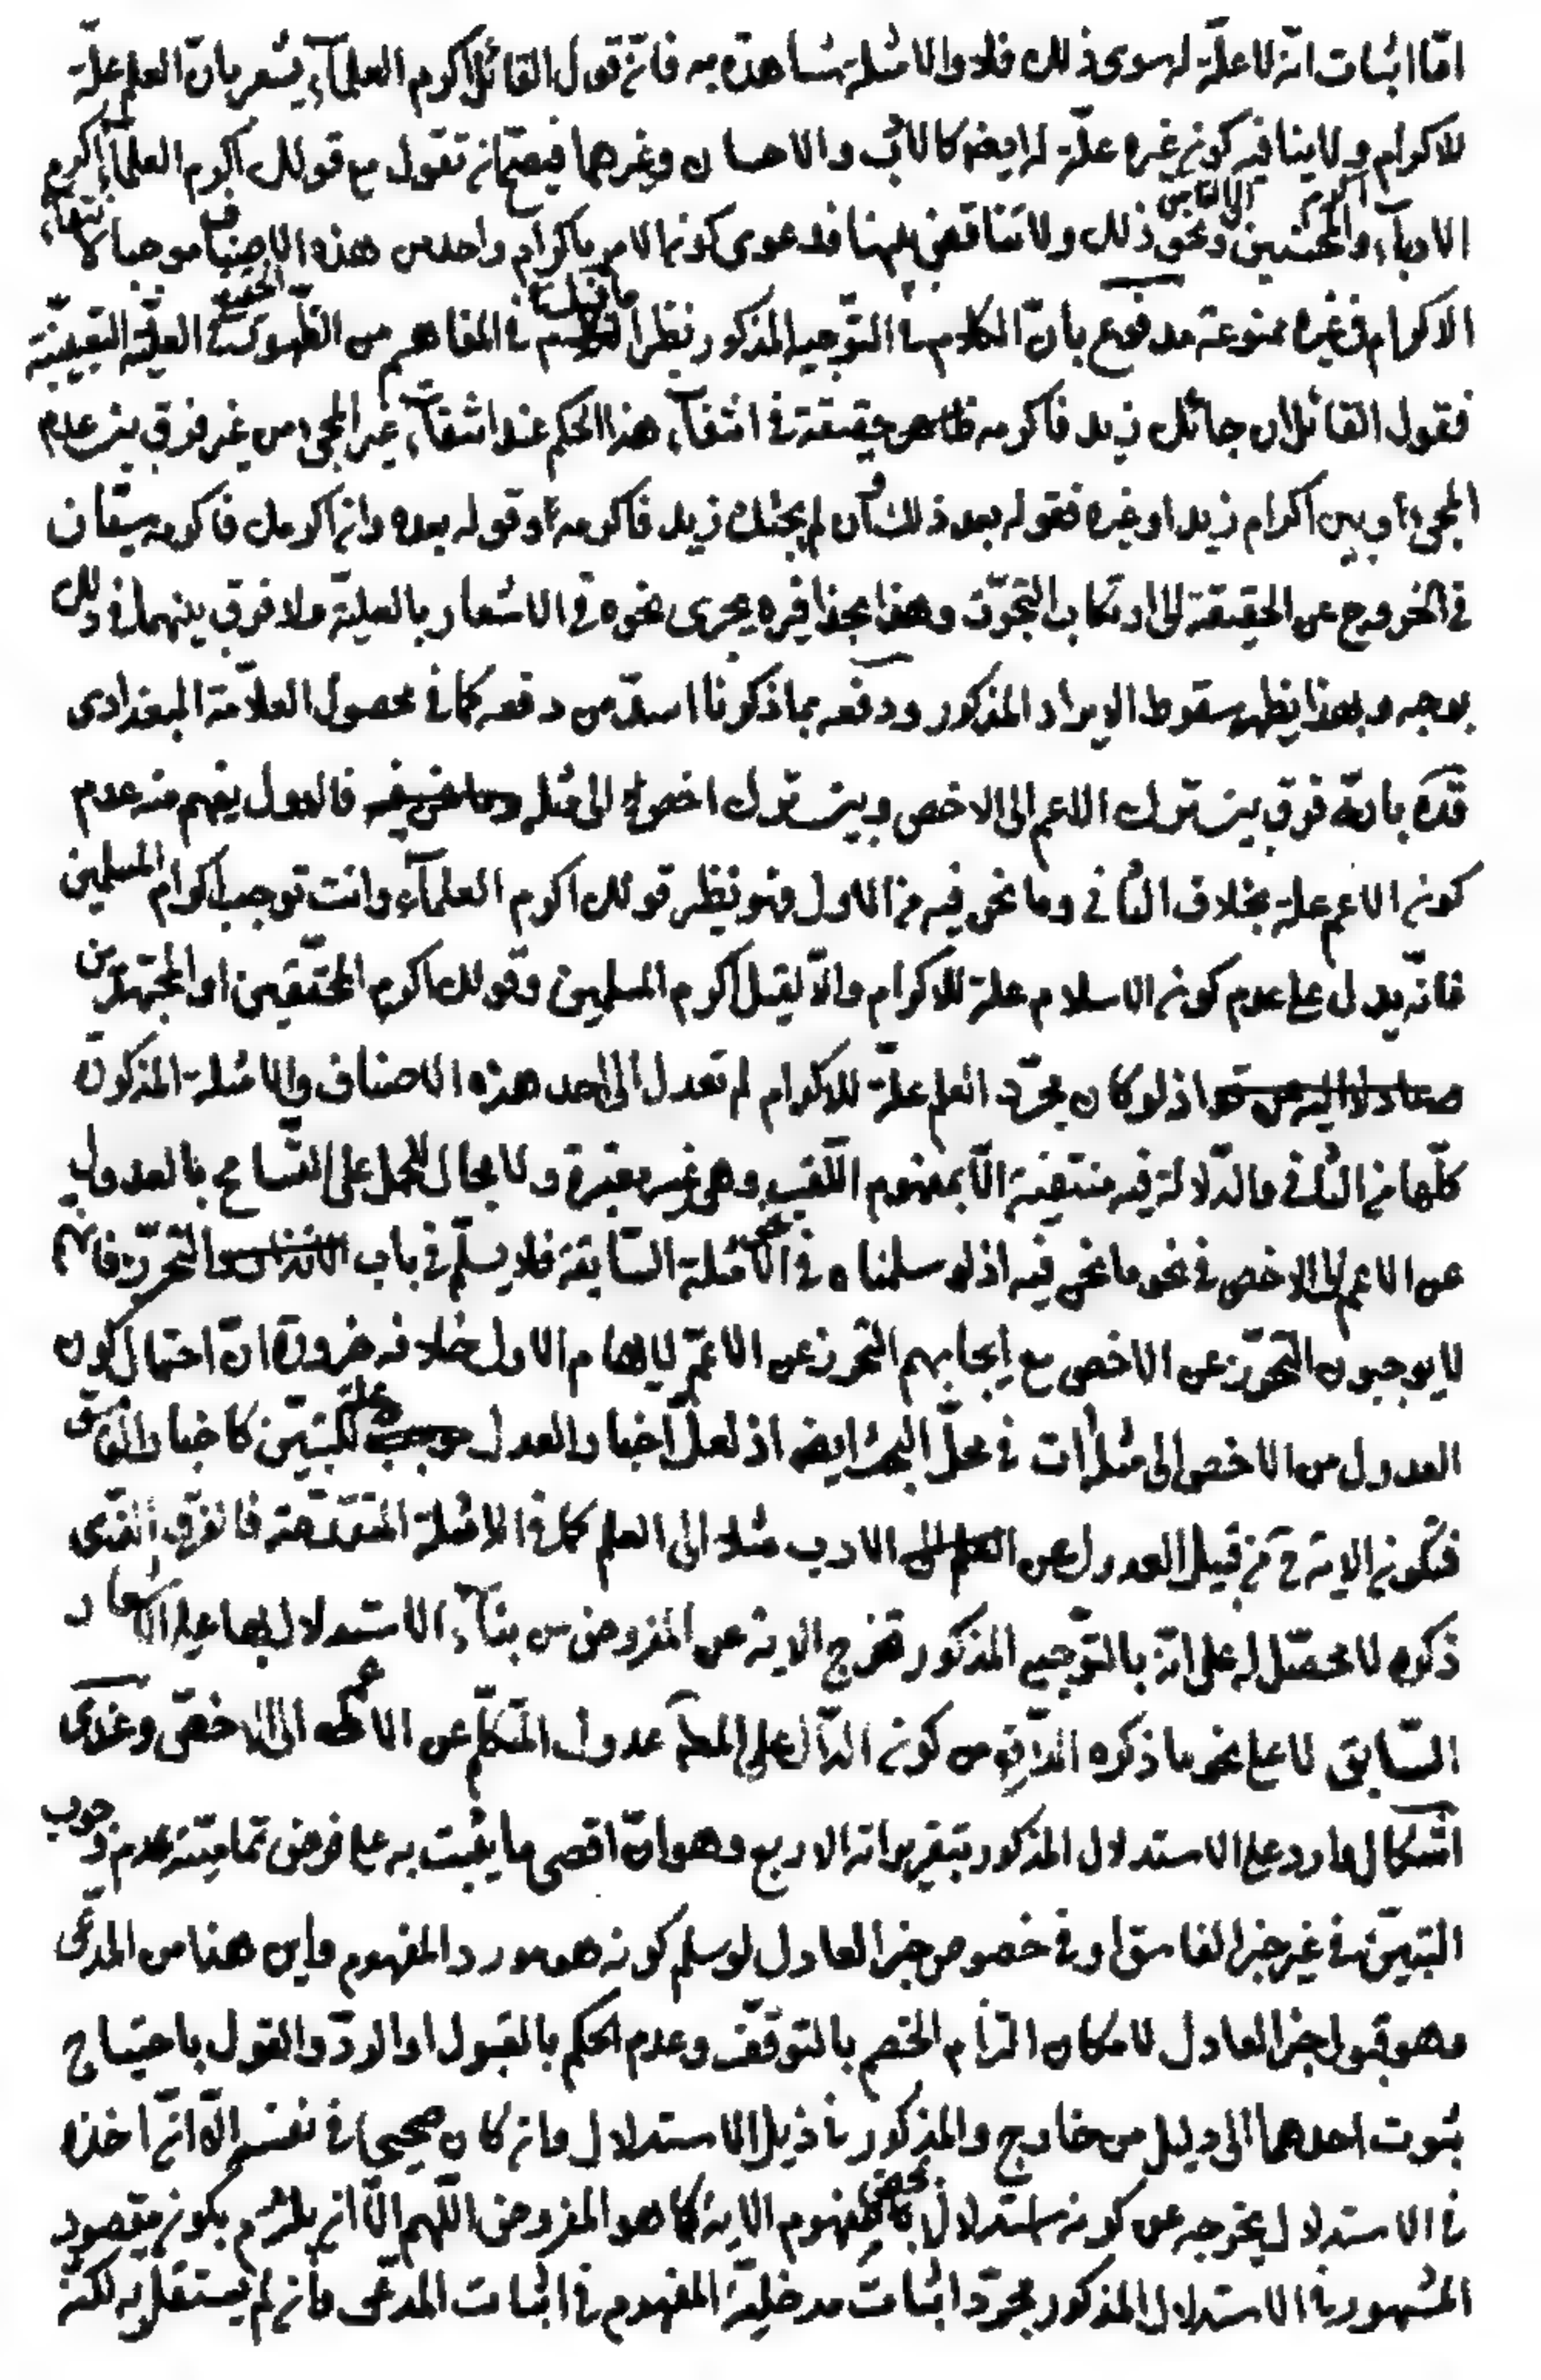 امّا اثبات انّه لا علّة له سوى ذلك فلا والامثلة شاهدة به فانّ قول القائل اكرم العلمآء يشعر بانّ العلم علّة
للاكرام ولا ينافيه كون غيره علّة له ايضا كالأب والاحسان وغيرهما فيصحّ ان تقول مع قولك اكرم العلمآء اكرم
الادبآء والمحسنين ونحو ذلك ولا تناقض بينها فدعوى كون الامر باكرام واحد من هذه الاصناف موجبا لانتفاء
الاكرام في غيره ممنوعة مدفوع بانّ الكلام في التوجيه المذكور نظير ما قيل في المفاهيم من الظهور في العلّية التعيينيّة
فقول القائل ان جائك زيد فاكرمه ظاهر حقيقة في انتفآء هذا الحكم عند انتفآء غير المجيء من غير فرق بين عدم
المجيء او بين اكرام زيد او غيره فقوله بعد ذلك وان لم يجئك زيد فاكرمه او قوله بعده وان اكرمك فاكرمه سيّان
في الخروج عن الحقيقة الى ارتكاب التجوّز وهذا بحذافيره يجرى نحوه في الاشعار بالعليّة ولا فرق بينهما في ذلك
بوجه وبهذا يظهر سقوط الايراد المذكور ودفعه بما ذكرنا اسدّ من دفعه كما في محصول العلاّمة البغدادى
قدّه بانّه فرق بين ترك الاعم الى الاخص وبين ترك اخص الى مثله فالاول يفهم منه عدم
كون الاعم علة بخلاف الثاني وما نحن فيه من الاول فهو نظير قولك اكرم العلمآء وانت توجب اكرام المسلمين
فانّه يدل على عدم كون الاسلام علة للاكرام والّا لقيل اكرم المسلمين وقولك اكرم المحقّقين او المجتهدين
اذ لو كان مجرّد العلم علّة للاكرام لم تعدل الى احد هذه الاصناف والامثلة المذكورة
كلّها من الثاني والدّلالة فيه منتفية الّا بمفهوم اللّقب وهى غير معتبرة ولا مجال للحمل على التّسامح بالعدول
عن الاعم الى الاخص في نحو ما نحن فيه اذ لو سلمناه في الامثلة السّابقة فلا يسلّم في باب التحرّز فانهم
لا يوجبون التحرّز عن الاخص مع ايجابهم التحرز عن الاعمّ لايهام الاول خلافه ضرورة انّ احتمال كون
العدول من الاخص الى مثله ات في محلّ البحث ايضا اذ لعلّ اخبار العدل علة للتبيّن كاخبار الفاسق
فتكون الاية ح من قبيل العدول عن الادب مثلا الى العلم كما في الامثلة المتقدّمة فالفرق الّذى
ذكره لا محصّل له على انّه بالتوجيه المذكور تخرج الاية عن المفروض من بنآء الاستدلال بها على الاشعار
السّابق لا على نحو ما ذكره الفارق من كون الدّال على المط عدول المتكلّم عن الاعم الى الاخصّ وعندى
اشكال وارد على الاستدلال المذكور بتقريراته الاربع وهو انّ اقصى ما يثبت به على فرض تماميّته عدم وجوب
التبيّن في غير خبر الفاسق او في خصوص خبر العادل لو سلم كونه هو مورد المفهوم واين هذا من المدّعى
وهو قبول خبر العادل لامكان التزام الخصم بالتوقّف وعدم الحكم بالقبول او الردّ والقول باحتياج
ثبوت احدهما الى دليل من خارج والمذكور في ذيل الاستدلال وان كان صحيحا في نفسه الّا انّ اخذه
في الاستدلال يخرجه عن كونه استدلالا بمحض مفهوم الاية كما هو المفروض اللّهم الّا ان يلتزم بكون مقصود
المشهور في الاستدلال المذكور مجرّد اثبات مدخليّة المفهوم في اثبات المدّعى وان لم يستقلّ به لكنّه